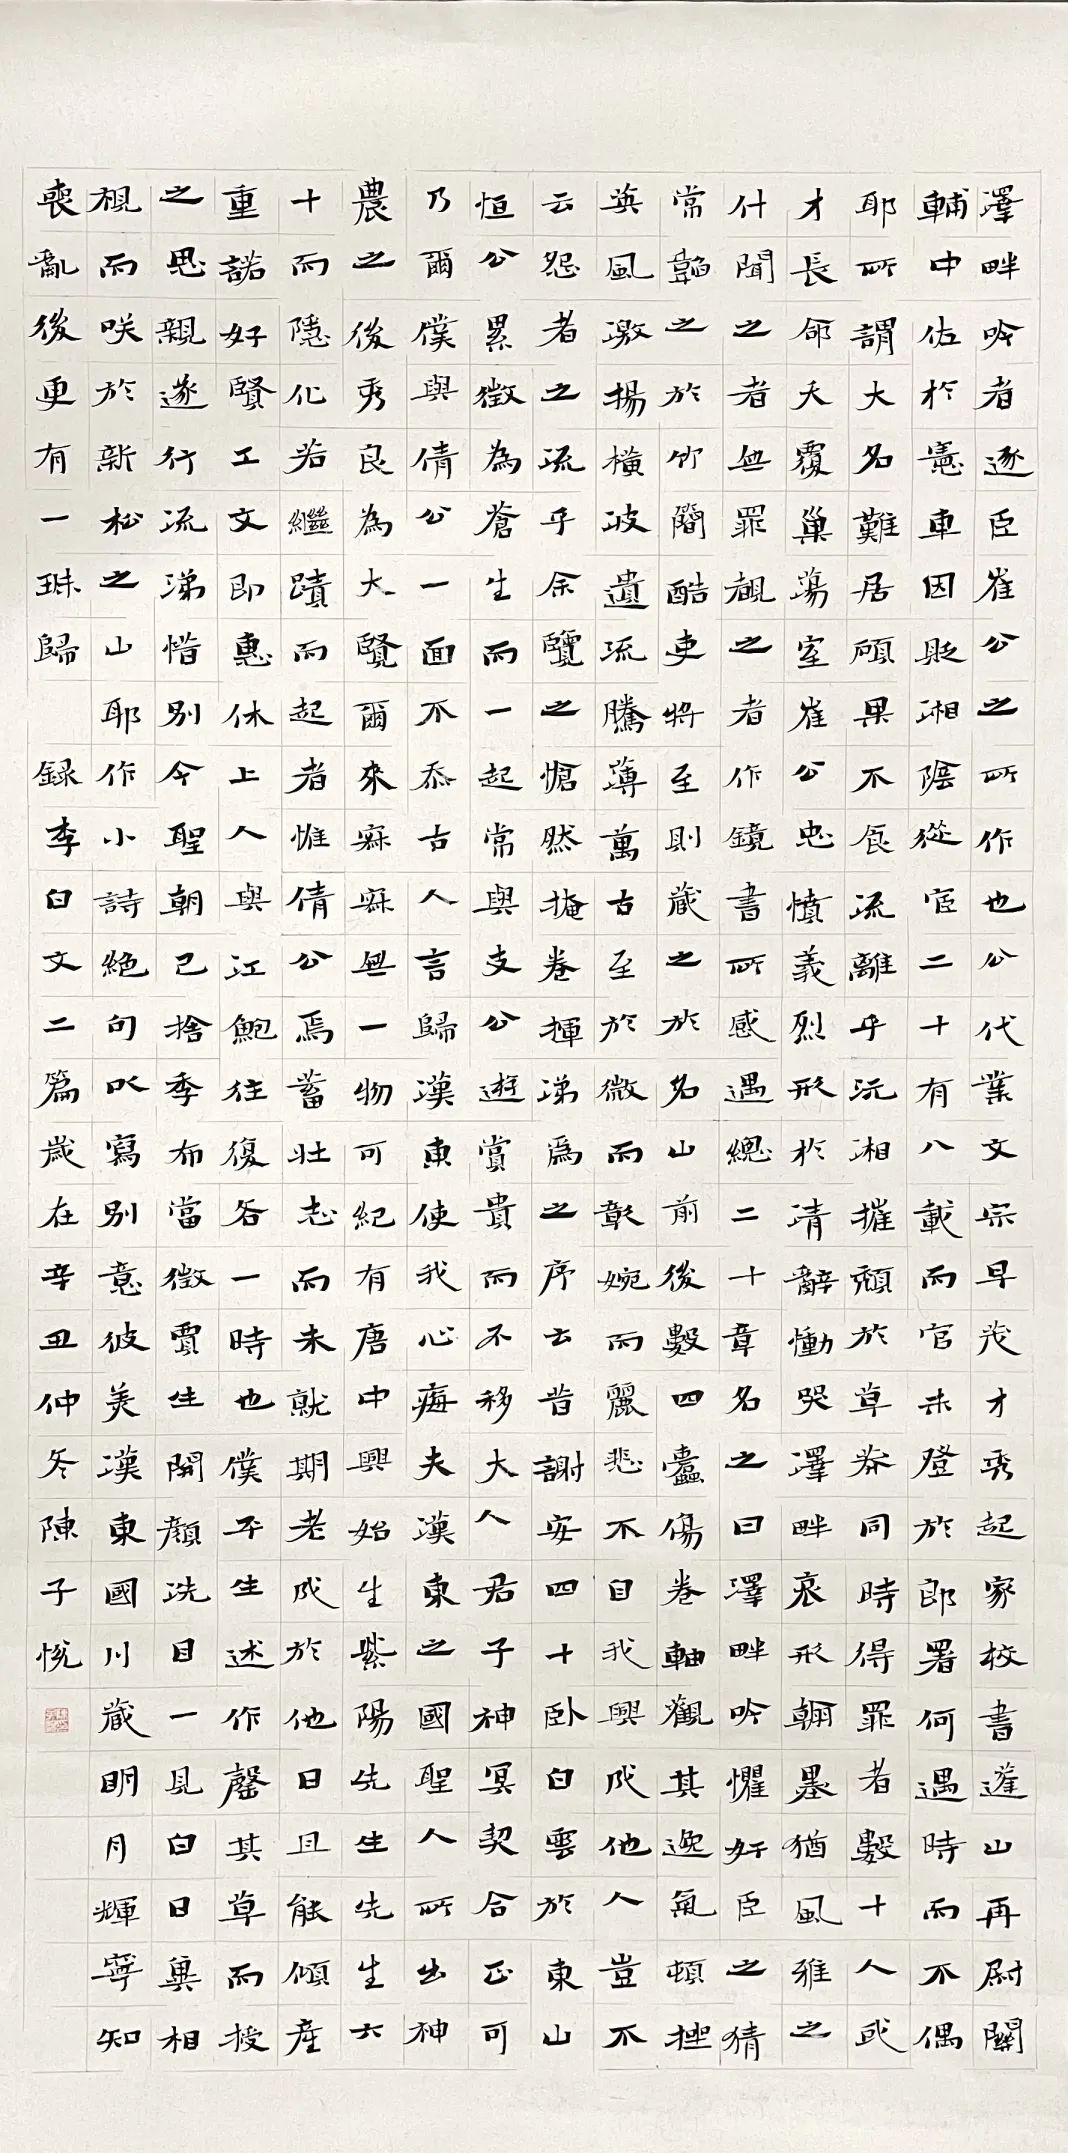 澤畔吟者逐臣崔公之所作也公代業文宗早茂才秀起家校書蓬山再尉關
輔中佐於憲車因貶湘陰從宦二十有八載而官未登於郎署何遇時而不偶
耶所謂大名難居碩果不食流離乎沅湘摧頹於草莽同時得罪者數十人或
才長命夭覆巢蕩室崔公忠憤義烈形於清辭慟哭澤畔哀形翰墨猶風雅之
什聞之者無罪覩之者作鏡書所感遇總二十章名之曰澤畔吟懼奸臣之猜
常韜之於竹簡酷吏將至則藏之於名山前後數四蠹傷卷軸觀其逸氣頓挫
英風激揚橫波遺流騰薄萬古至於微而彰婉而麗悲不自我興成他人豈不
云怨者之流乎余覽之愴然掩卷揮涕爲之序云昔謝安四十卧白雲於東山
恒公累徵為蒼生而一起常與支公遊賞貴而不移大人君子神冥契合正可
乃爾僕與倩公一面不忝古人言歸漢東使我心痗夫漢東之國聖人所出神
農之後秀良為大賢爾來寂寂無一物可紀有唐中興始生紫陽先生先生六
十而隱化若繼蹟而起者惟倩公焉蓄壯志而未就期老成於他日且能傾産
重諾好賢工文即惠休上人與江鮑往復各一時也僕平生述作罄其草而授
之思親遂行流涕惜別今聖朝已捨季布當徵賈生開顏洗目一見白日冀相
視而咲於新松之山耶作小詩絕句以寫別意彼美漢東國川藏明月輝寧知
喪亂後更有一珠歸 録李白文二篇歲在辛丑仲冬陳子悅